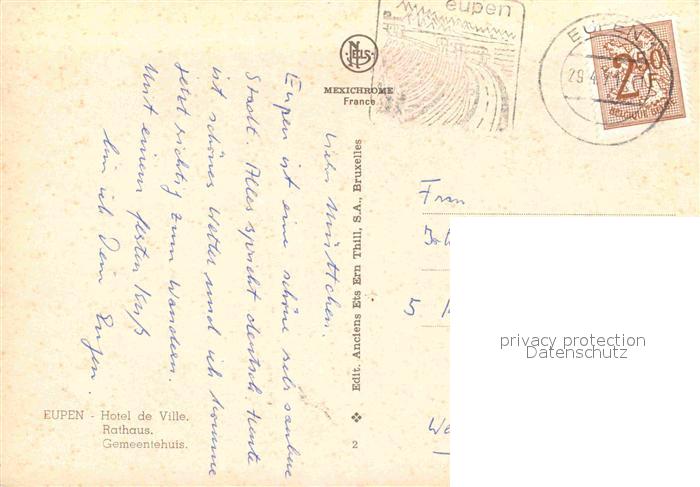 eupen
EUPEN
29.4
2F50
BELGIQUE-BEL
NELS
MEXICHROME
France
Liebes Muttchen.
Eupen ist eine schöne sehr saubere
Stadt. Alles spricht deutsch. Heute
ist schönes Wetter und ich komme
jetzt richtig zum Wandern.
Mit einem festen Kuß
bin ich Dein Eugen.
Edit. Anciens Ets Ern Thill, S.A., Bruxelles
2
EUPEN - Hotel de Ville.
Rathaus.
Gemeentehuis.
Frau
5
We
privacy protection
Datenschutz